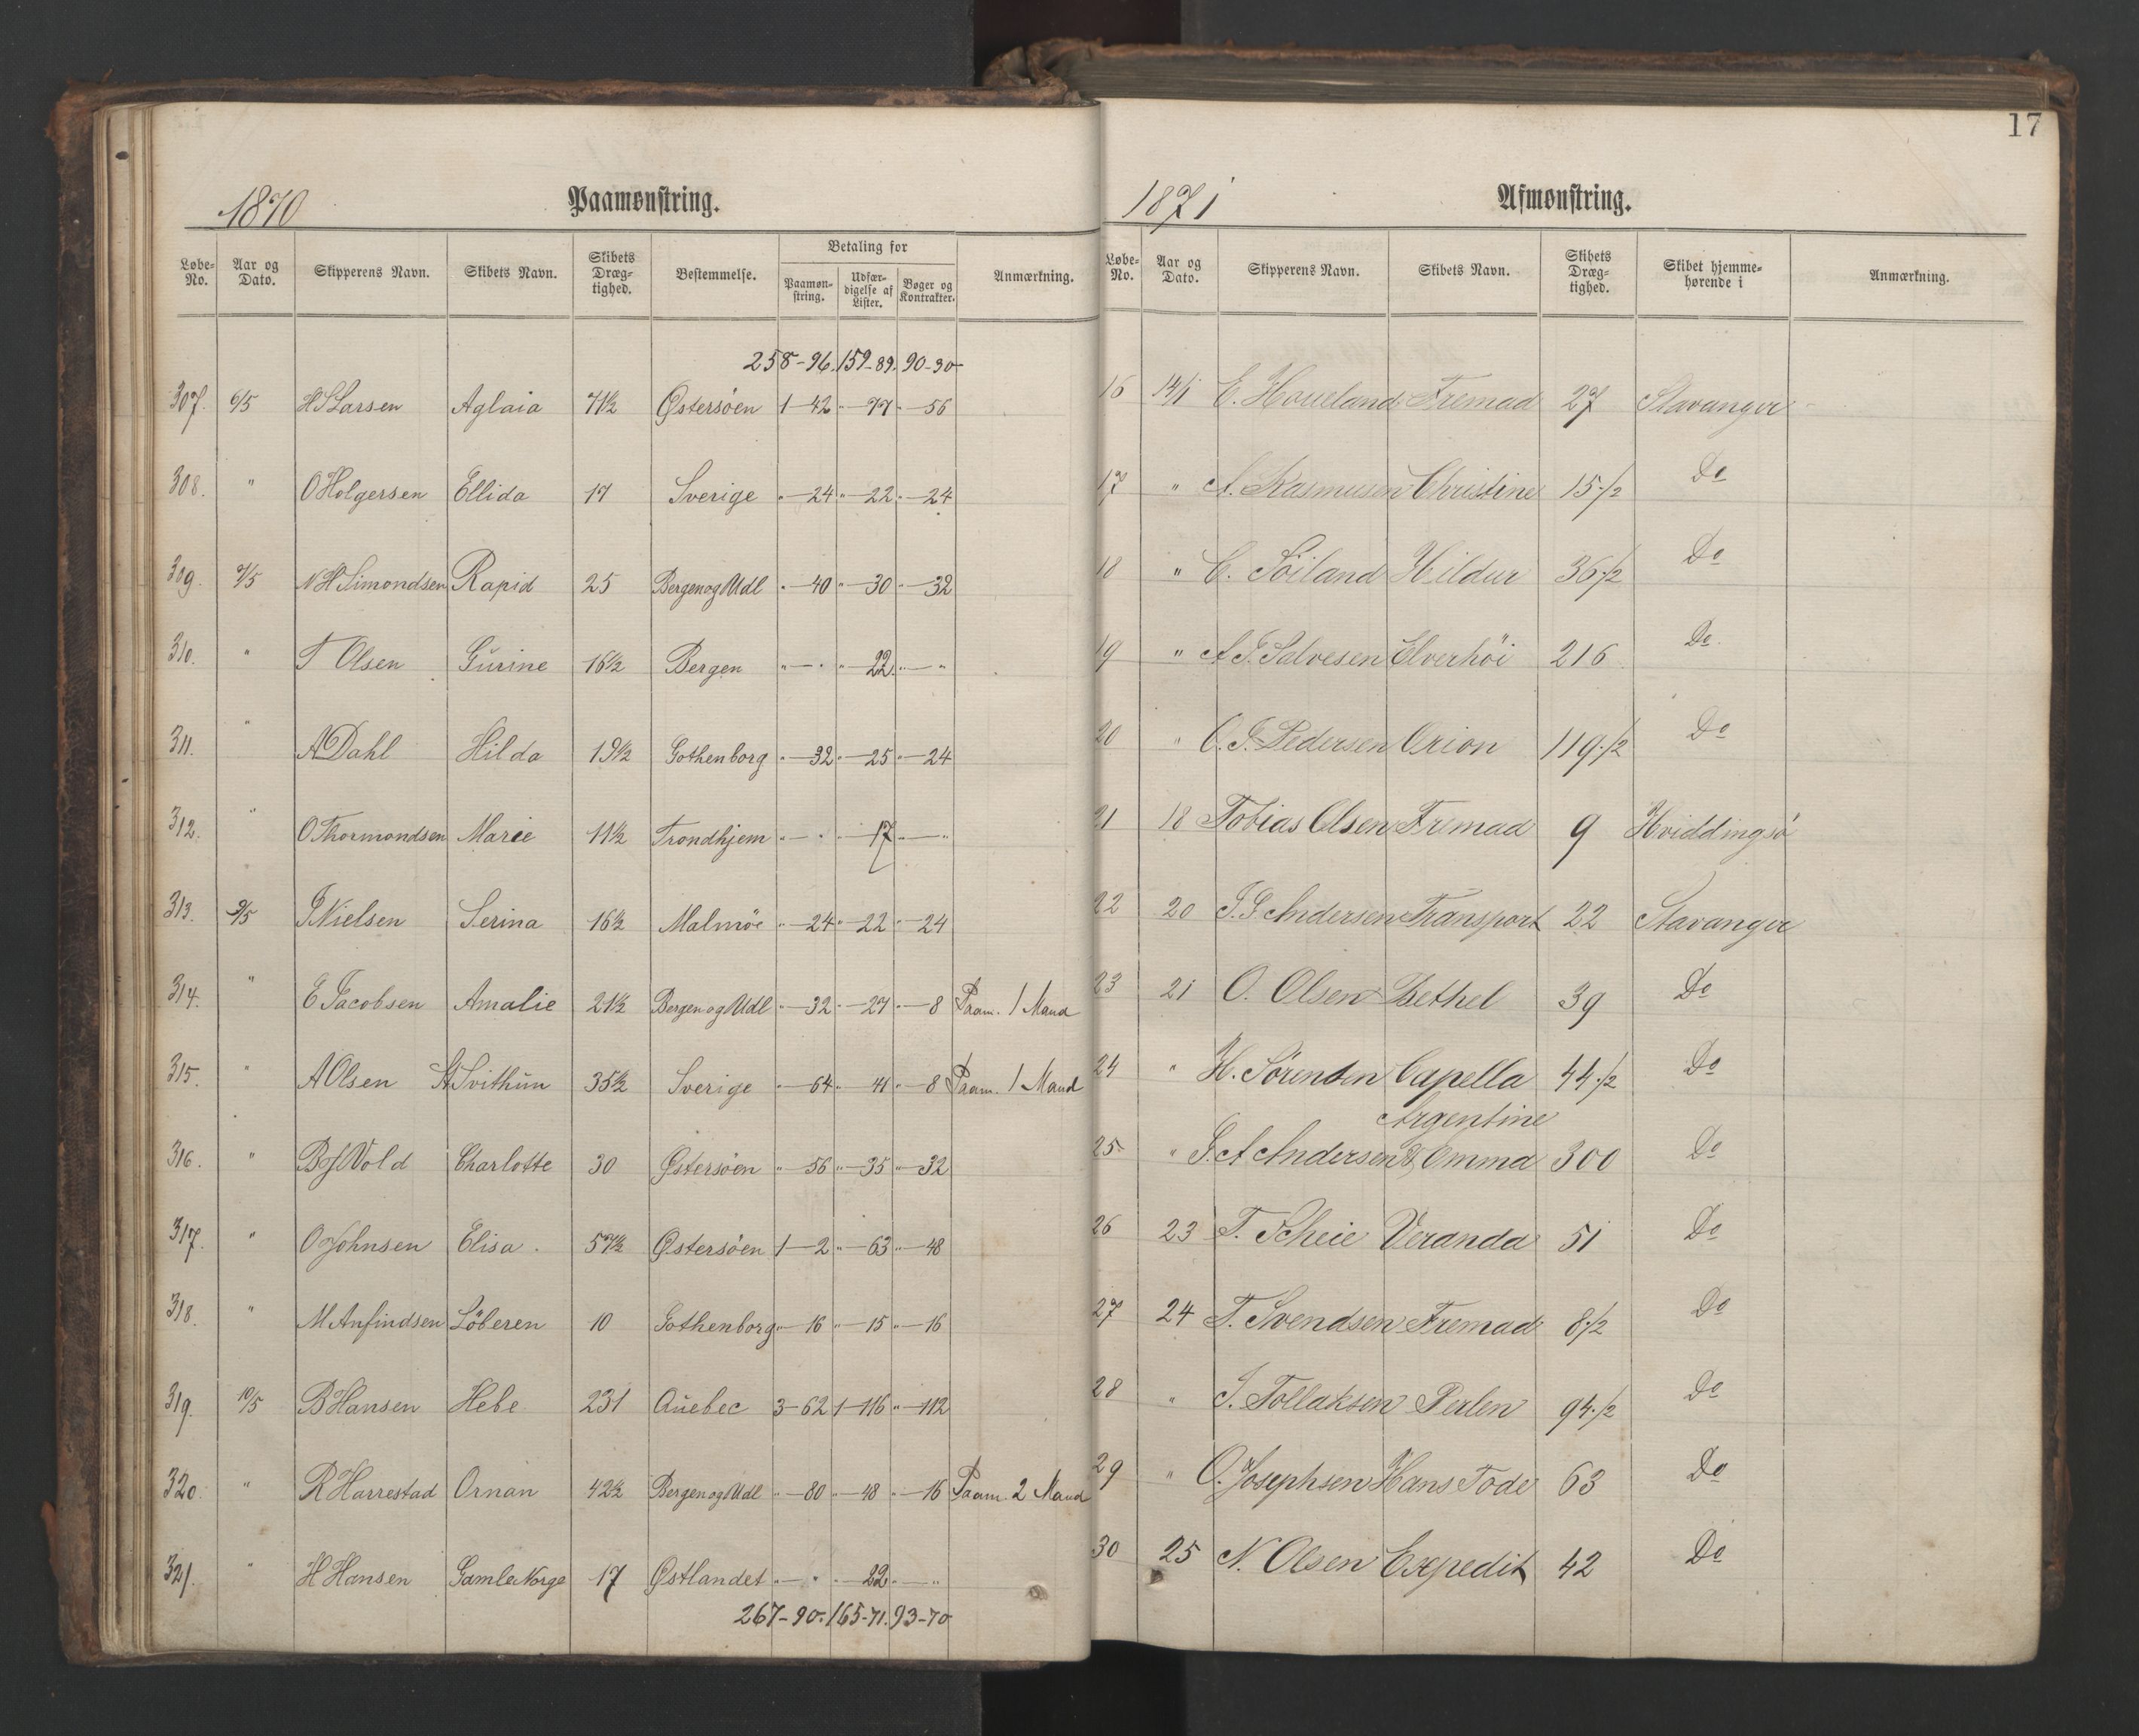 17
1870 Paamønstring.
Løbe-No. Aar og Dato. Skipperens Navn. Skibets Navn. Skibets Dræg-tighed. Bestemmelse. Betaling for Paamøn-string. Udfær-digelse af Lister. Bøger og Kontrakter. Anmærkning.
258-96. 159-89. 90-30
307. 6/5 H S Larsen Aglaia 71½ Østersøen 1-42 "-77 "-56
308. " O Holgersen Ellida 17 Sverige "-24 "-22 "-24
309. 7/5 N H Simondsen Rapid 25 Bergen og Udl "-40 "-30 "-32
310. " T Olsen Gurine 16½ Bergen "-" "-22 "-"
311. " A Dahl Hilda 19½ Gothenborg "-32 "-25 "-24
312. " O Thormondsen Marie 11½ Trondhjem "-" "-17 "-"
313. 9/5 J Nielsen Serina 16½ Malmöe "-24 "-22 "-24
314. " E Jacobsen Amalie 21½ Bergen og Udl "-32 "-27 "-8 Paam. 1 Mand
315. " A Olsen St Svithun 35½ Sverige "-64 "-41 "-8 Paam. 1 Mand
316. " B J Wold Charlotte 30 Østersøen "-56 "-35 "-32
317. " O Johnsen Elisa 57½ Østersøen 1-2 "-63 "-48
318. " M Anfindsen Löberen 10 Gothenborg "-16 "-15 "-16
319. 10/5 B Hansen Hebe 231 Quebec 3-62 1-116 "-112
320. " R Harrestad Ornan 42½ Bergen og Udl "-80 "-48 "-16 Paam. 2 Mand
321. " H Hansen Gamle Norge 17 Østlandet "-" "-22 "-"
267-90. 165-71. 93-70
1871 Afmønstring.
Løbe-No. Aar og Dato. Skipperens Navn. Skibets Navn. Skibets Dræg-tighed. Skibet hjemme-hørende i Anmærkning.
16 14/1 E. Houeland Fremad 27 Stavanger
17 " A. Rasmusen Christine 15 ½ Do
18 " C. Soiland Hildur 36 ½ Do
19 " A. G. Salvesen Elverhöi 216 Do
20 " O. G. Pedersen Orion 119 ½ Do
21 18 Tobias Olsen Fremad 9 Hviddingsö
22 20 J. G Andersen Transport 22 Stavanger
23 21 O. Olsen Bethel 39 Do
24 " H. Sørensen Capella 44 ½ Do
25 " G. A Andersen Argentine & Emma 300 Do
26 23 T. Scheie Veranda 51 Do
27 24 T. Svendsen Fremad 8 ½ Do
28 " J. Tollaksen Perlen 94 ½ Do
29 " O. Josephsen Hans Tode 63 Do
30 25 N. Olsen Expedit 42 Do